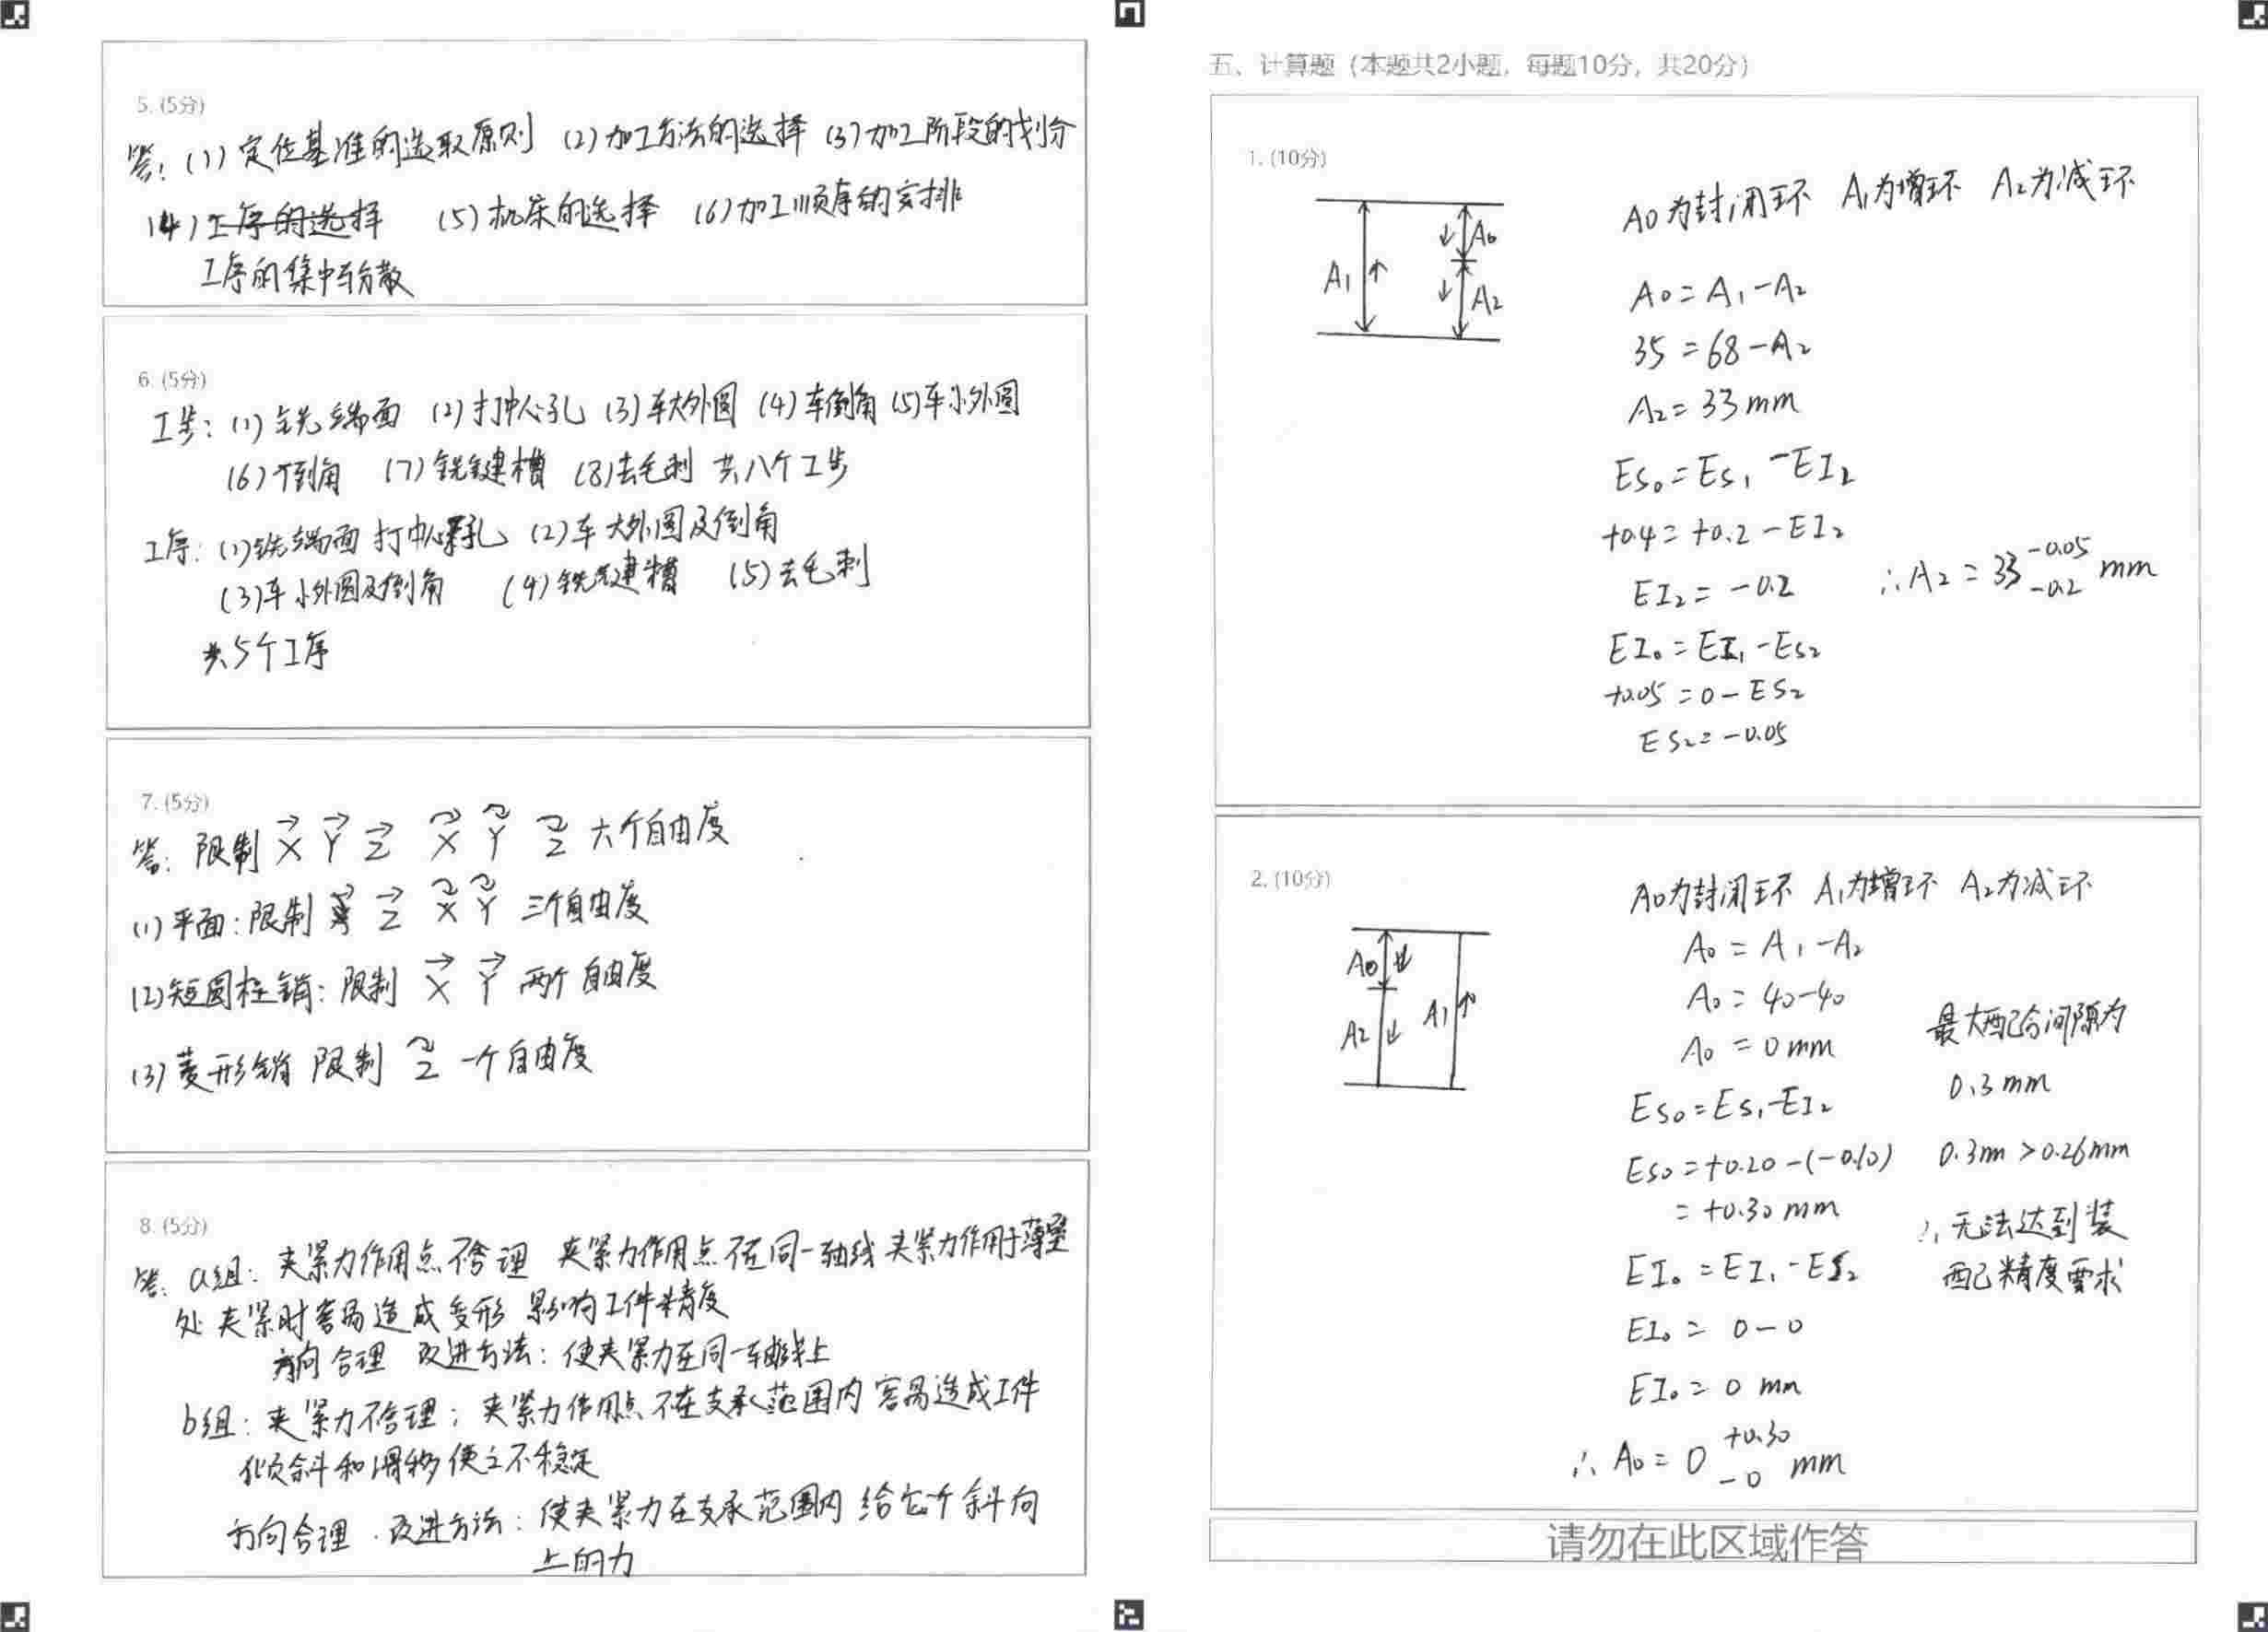 5. (5分)
答: (1) 定位基准的选取原则 (2) 加工方法的选择 (3) 加工阶段的划分
(4) 工序的选择 (5) 机床的选择 (6) 加工顺序的安排
工序的集中与分散
6. (5分)
工步: (1) 铣端面 (2) 打中心孔 (3) 车大外圆 (4) 车倒角 (5) 车小外圆
(6) 倒角 (7) 铣键槽 (8) 去毛刺 共八个工步
工序: (1) 铣端面 打中心孔 (2) 车大外圆及倒角
(3) 车小外圆及倒角 (4) 铣键槽 (5) 去毛刺
共5个工序
7. (5分)
答: 限制 X⃗ Y⃗ Z⃗ X⃕ Y⃕ Z⃕ 六个自由度
(1) 平面: 限制 Z⃗ X⃕ Y⃕ 三个自由度
(2) 短圆柱销: 限制 X⃗ Y⃗ 两个自由度
(3) 菱形销 限制 Z⃕ 一个自由度
8. (5分)
答: a组: 夹紧力作用点不合理 夹紧力作用点不在同一轴线 夹紧力作用于薄壁
处 夹紧时容易造成变形 影响工件精度
方向合理 改进方法: 使夹紧力在同一轴线上
b组: 夹紧力不合理; 夹紧力作用点不在支承范围内 容易造成工件
倾斜和滑移 使之不稳定
方向合理. 改进方法: 使夹紧力在支承范围内 给它个斜向
上的力
五、计算题 (本题共2小题, 每题10分, 共20分)
1. (10分)
A0为封闭环 A₁为增环 A₂为减环
A₁ A₀ A₂
A₀ = A₁ - A₂
35 = 68 - A₂
A₂ = 33 mm
ES₀ = ES₁ - EI₂
+0.4 = +0.2 - EI₂
EI₂ = -0.2
∴ A₂ = 33 -0.05 -0.2 mm
EI₀ = EI₁ - ES₂
+0.05 = 0 - ES₂
ES₂ = -0.05
2. (10分)
A0为封闭环 A₁为增环 A₂为减环
A0 A₂ A₁
A₀ = A₁ - A₂
A₀ = 40-40
A₀ = 0 mm
ES₀ = ES₁ - EI₂
ES₀ = +0.20 - (-0.10)
= +0.30 mm
EI₀ = EI₁ - ES₂
EI₀ = 0 - 0
EI₀ = 0 mm
∴ A₀ = 0 +0.30 -0 mm
最大配合间隙为
0.3 mm
0.3m > 0.26mm
∴ 无法达到装
配精度要求
请勿在此区域作答